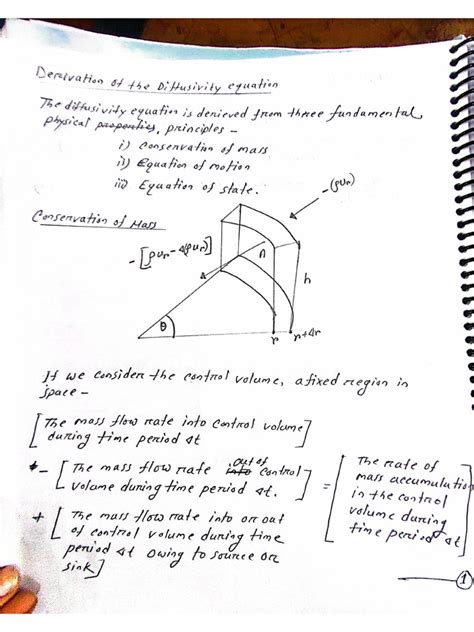 Derivation of the Diffusivity equation
The diffusivity equation is derieved from three fundamental
physical properties, principles -
i) Conservation of mass
ii) Equation of motion
iii) Equation of state.
Conservation of Mass
-(ρur)
-[ρur - Δ(ρur)]
A
h
θ
r
r+Δr
If we consider the control volume, a fixed region in
space -
[The mass flow rate into control volume
during time period Δt]
- [The mass flow rate into out of control
volume during time period Δt.]
+ [The mass flow rate into or out
of control volume during time
period Δt owing to source or
sink]
= [The rate of
mass accumulation
in the control
volume during
time period Δt]
1